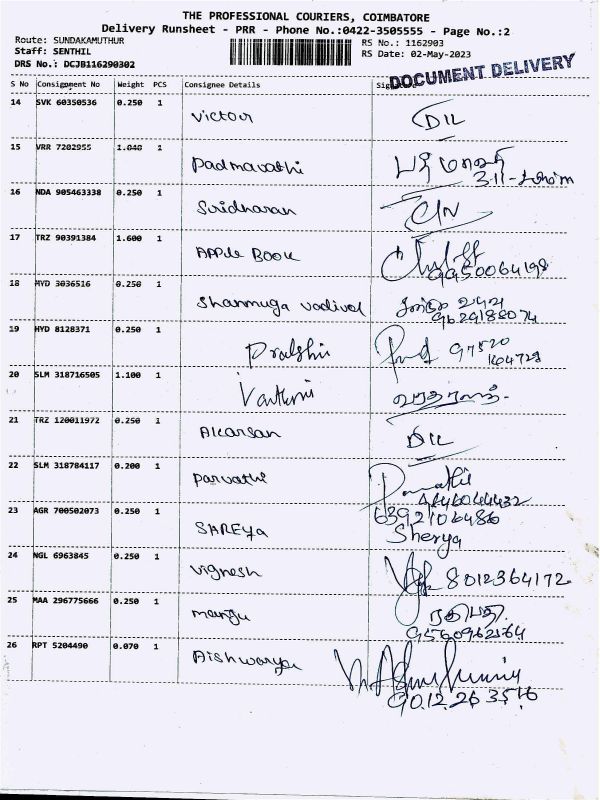 THE PROFESSIONAL COURIERS, COIMBATORE
Delivery Runsheet - PRR - Phone No.:0422-3505555 - Page No.:2
Route: SUNDAKAMUTHUR RS No.: 1162903
Staff: SENTHIL RS Date: 02-May-2023
DRS No.: DCJB116290302
DOCUMENT DELIVERY
S No Consignment No Weight PCS Consignee Details
14 SVK 60350536 0.250 1 Victor DIL
15 VRR 7202955 1.040 1 Padmavathi
16 NDA 905463338 0.250 1 Sridharan
17 TRZ 90391384 1.600 1 APPle BOOK
9950064198
18 HYD 3036516 0.250 1 Shanmuga vadivel
9629188074
19 HYD 8128371 0.250 1
97520
164723
20 SLM 318716505 1.100 1
21 TRZ 120011972 0.250 1 DIL
22 SLM 318784117 0.200 1 Parvathi
23 AGR 700502073 0.250 1 SAREYA 6392106486
Sherya
24 NGL 6963845 0.250 1 Vignesh 8012364172
25 MAA 296775666 0.250 1
26 RPT 5204490 0.070 1 Aishwarya
90.12.26 3516